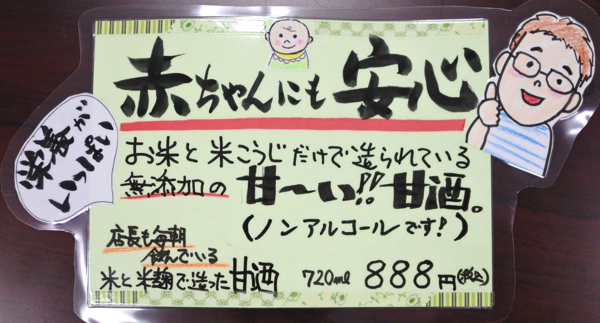 赤ちゃんにも安心
栄養が
いっぱい
お米と米こうじだけで造られている
無添加の甘〜い!!甘酒。
(ノンアルコールです!)
店長も毎朝
飲んでいる
米と米麹で造った甘酒 720ml 888円(税込)